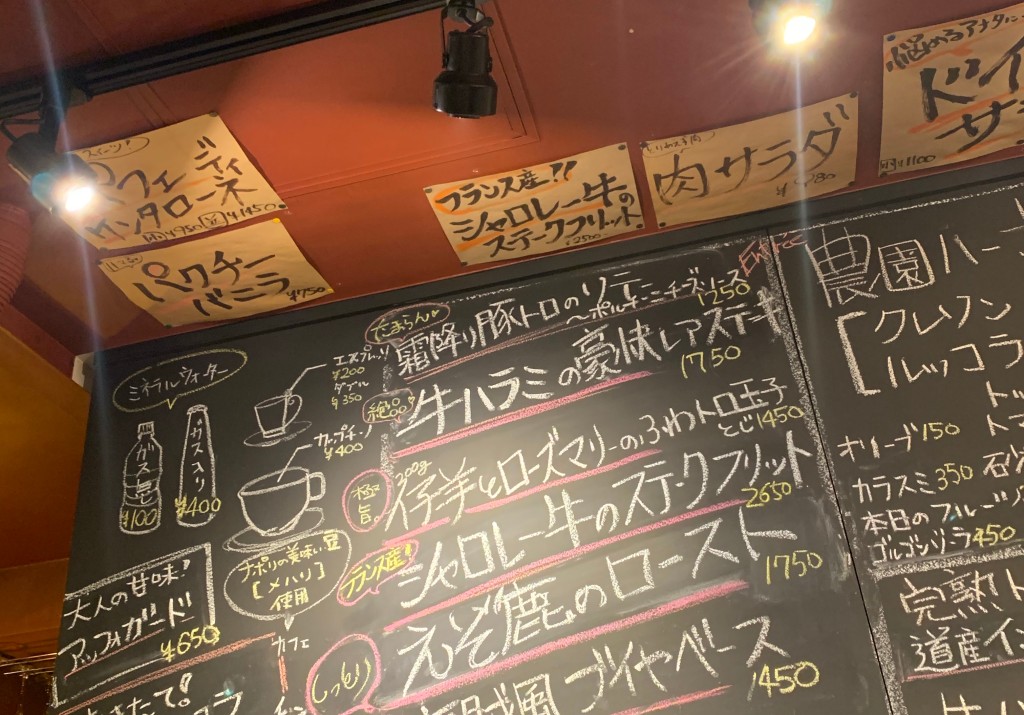 パフェ ディ
サンタローネ
¥950 豆 ¥1450
パクチー
バニラ
¥750
フランス産!!
シャロレー牛の
ステークフリット
¥2500
肉サラダ
悩めるアナタに
ドイ
サ
¥1100
ミネラルウォーター
ガス無し
¥100
ガス入り
¥400
エスプレッソ
¥200
ダブル
¥350
カップチーノ
¥400
ナポリの美味い豆
[メハリ]
使用
大人の甘味!
アッフォガード
¥650
カフェ
たまらん
霜降り豚トロのソテー
〜ポルチーニチーズソース
1250
絶品
牛ハラミの豪快レアステーキ
1750
極旨。
300g
仔羊とローズマリーのふわトロ玉子
とじ 1450
フランス産!
シャロレー牛のステークフリット
2650
えぞ鹿のロースト
1750
しっとり
海賊風ブイヤベース
1450
農園ハー
[クレソン
ルッコラ
トッ
トマ
オリーブ 150
カラスミ 350
本日のフルーツ
ゴルゴンゾーラ 450
完熟ト
道産イン